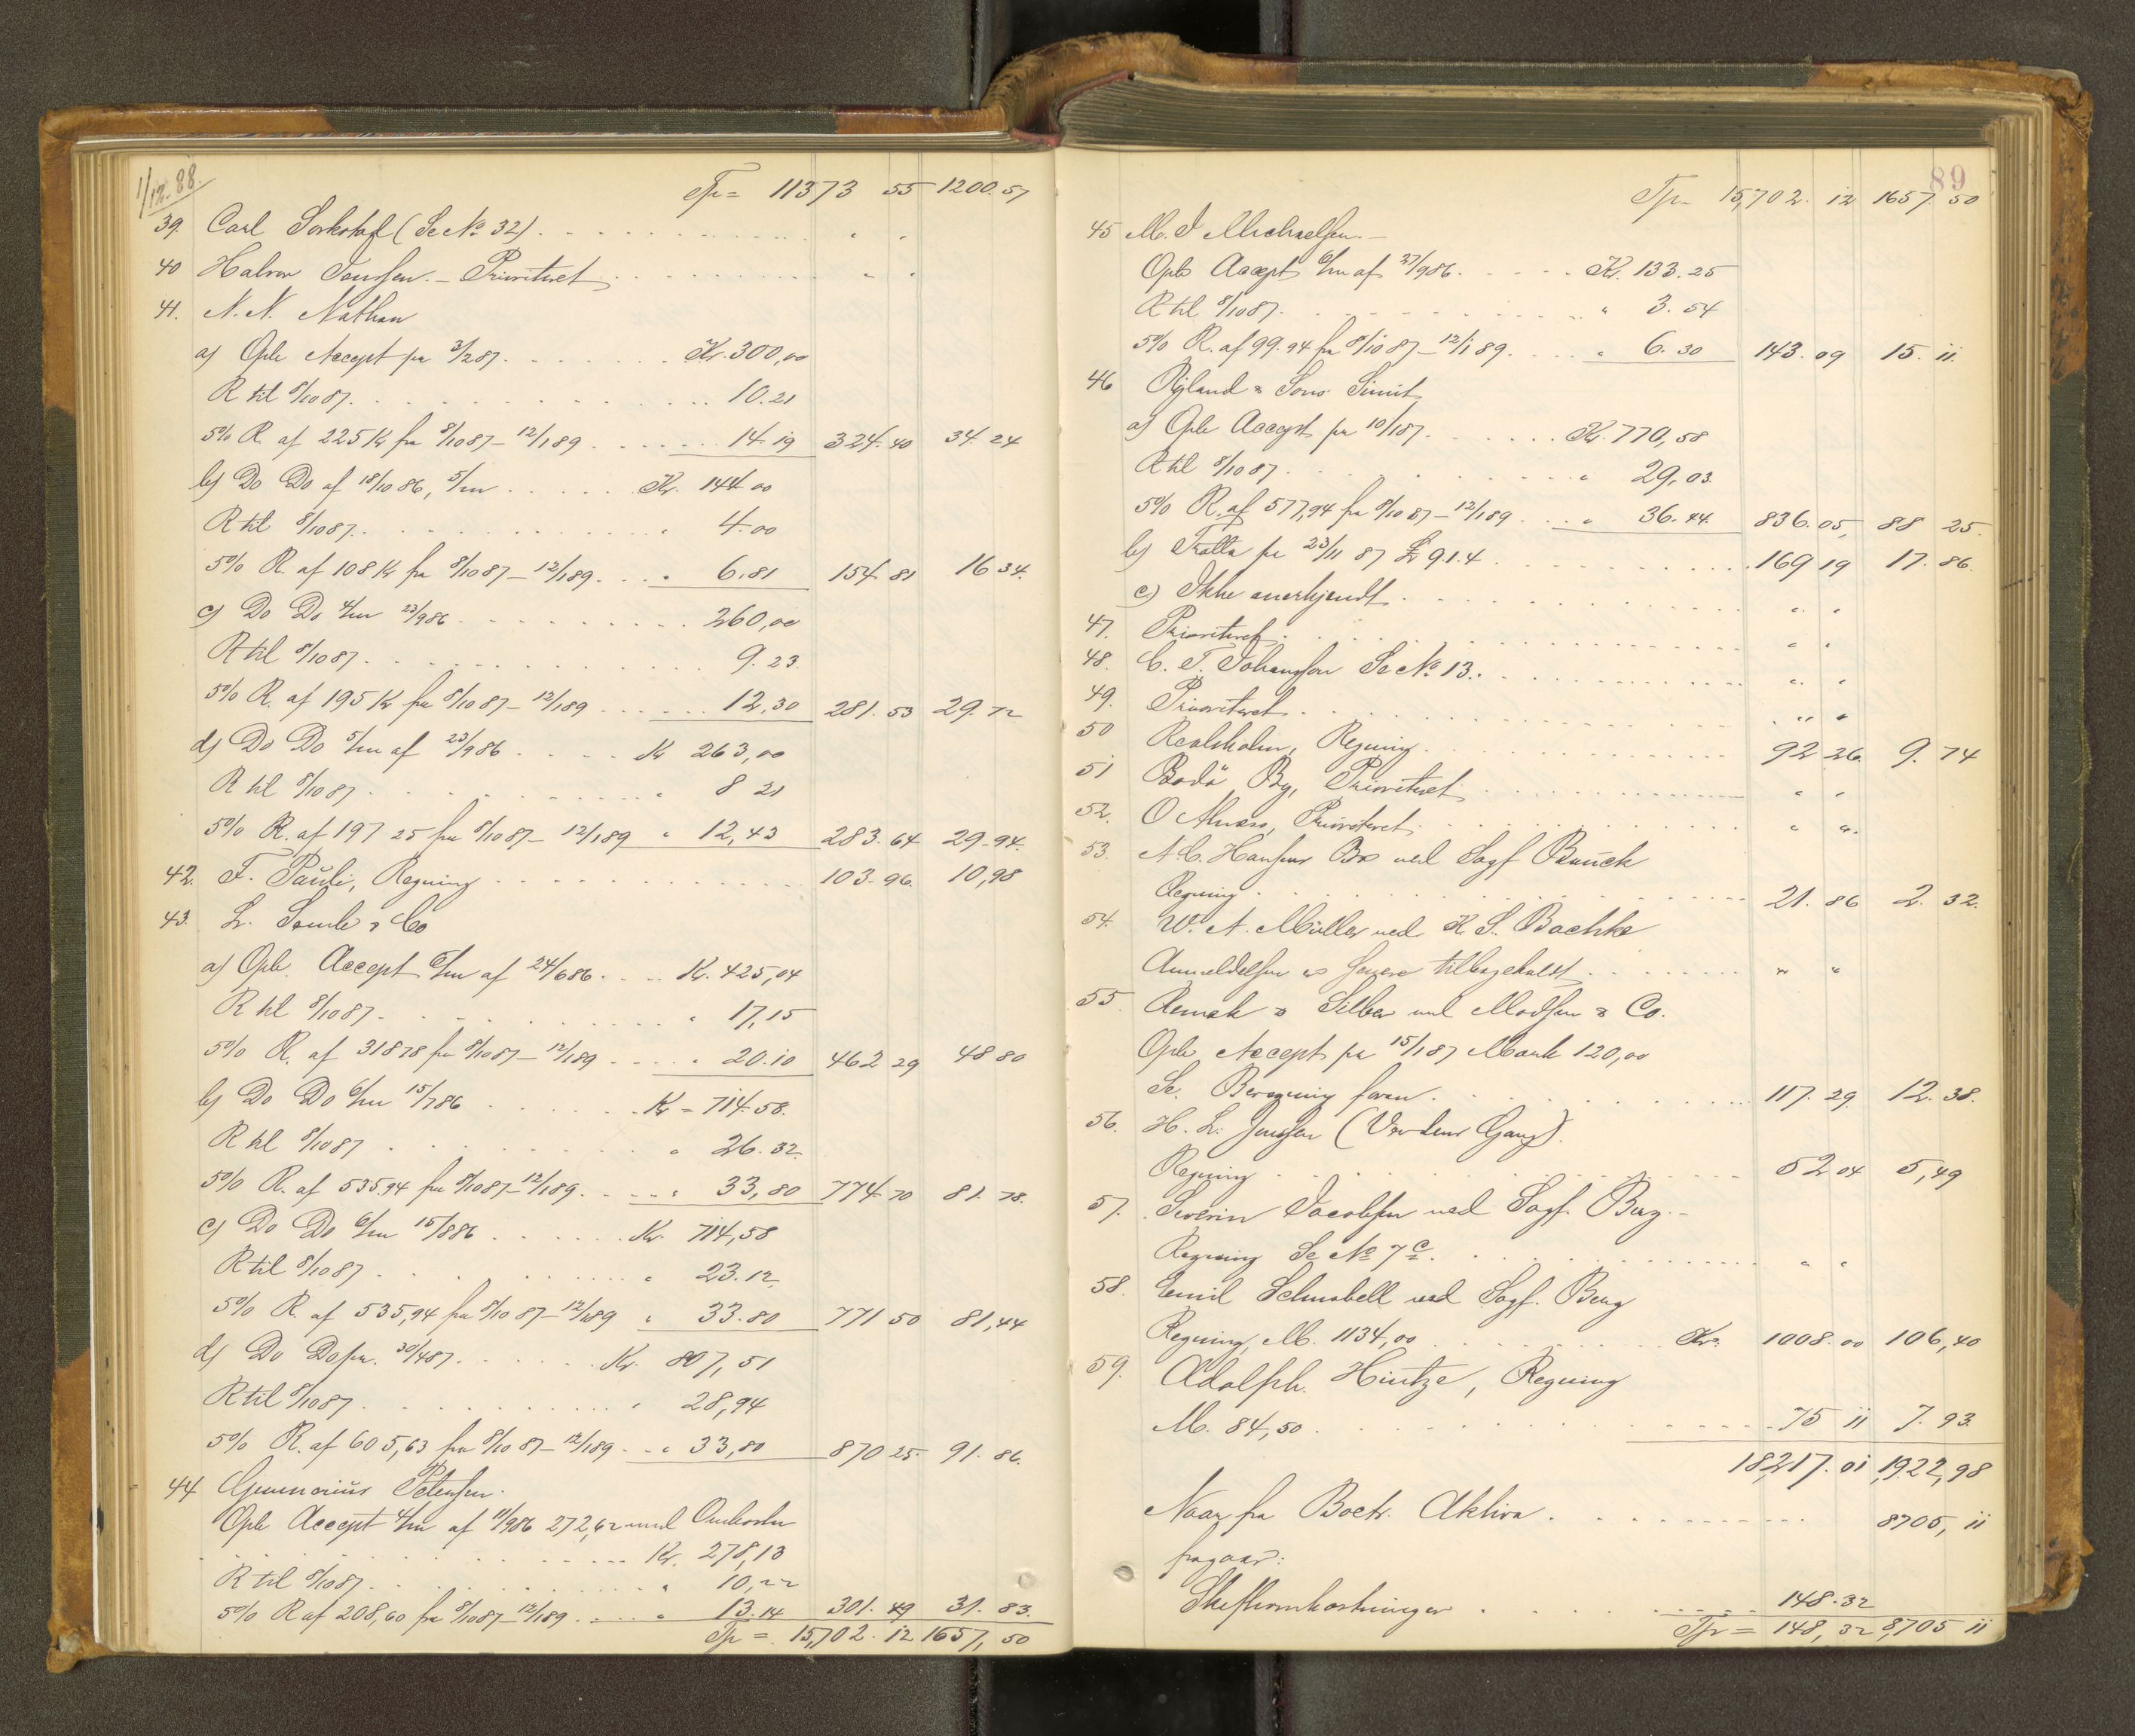 1/12.88.
Tr= 11373 55 1200.57
39. Carl (Se No 32)
40 Halvor Jonssen. – Prioriteret
41. N. N. Nathan
a) Opb Accept pr 3/2 87. Kr. 300,00
R til 8/10 87. 10.21
5% R. af 225 Kr fra 8/10 87 – 12/1 89 14.19 324.40 34.24
b) Do Do af 18/10 86, 5/m Kr. 144.00
R til 8/10 87. " 4.00
5% R. af 108 Kr fra 8/10 87 – 12/1 89. " 6.81 154 81 16 34.
c) Do Do 4/m 23/9 86 260,00
R til 8/10 87. 9.23
5% R. af 195 Kr fra 8/10 87 – 12/1 89 12.30 281.53 29.72
d) Do Do 5/m af 23/9 86 Kr 263,00
R til 8/10 87 " 8 21
5% R. af 197 25 fra 8/10 87 – 12/1 89 " 12,43 283.64 29.94.
42. F. Pauli, Regning 103.96. 10,98
43. L. & Co
a) Opb. Accept 6/m af 24/6 86. Kr. 425,04
R til 8/10 87. " 17,15
5% R. af 318 78 fra 8/10 87 – 12/1 89 " 20.10 462 29 48 80
b) Do Do 6/m 15/7 86 Kr = 714.58.
R til 8/10 87 " 26.32.
5% R. af 535.94 fra 8/10 87 – 12/1 89. " 33,80 774.70 81.78.
c) Do Do 6/m 15/8 86 Kr. 714,58
R til 8/10 87 " 23.12
5% R. af 535,94 fra 8/10 87 – 12/1 89 " 33.80 771 50 81,44
d) Do Do pr. 30/4 87. Kr. 807,51
R til 8/10 87. " 28,94
5% R. af 605,63 fra 8/10 87 – 12/1 89 " 33,80 870 25. 91.86.
44 Gunnerius Petersen.
Opb Accept 4/m af 11/9 86 272,62 med Omkostn
Kr. 278,13
R til 8/10 87. " 10,22
5% R af 208,60 fra 8/10 87 – 12/1 89. " 13.14 301.49 31.83.
Tr = 15,702.12 1657,50
89
Tr= 15,702.12 1657.50
45 M. J Michaelsen. –
Opb Accept 6/m af 27/9 86. Kr. 133.25
R til 8/10 87. " 3.54
5% R. af 99.94 fra 8/10 87 – 12/1 89. " 6.30 143.09 15.11.
46 Ryland & Sons Limit
a) Opb Accept pr 10/1 87. Kr. 770,58
R til 8/10 87. " 29,03.
5% R. af 577,94 fra 8/10 87 – 12/1 89. " 36.44. 836.05, 88 25.
b) Tratta pr 23/11 87 £ 9.1.4 169 19 17.86.
c) Ikke anerkjendt " "
47. Prioriteret " "
48. C. F. Johannsen Se No 13. " "
49. Prioriteret " "
50 Regning 92 26. 9.74
51 Bodö By, Prioriteret " "
52. O Prioriteret " "
53. A. C. Hansens Bo ved Sagf
Regning 21.86 2.32.
54. W. A. Müller ved K. S. Bachke
Anmeldelsen er senere tilbagekaldt " "
55 & Silber ved Madsen & Co.
Opb Accept pr 15/1 87 Mark 120,00
Se. Beregning foran. 117.29 12.38.
56. H. L. Jenssen (Verdens Gang).
Regning 52 04 5,49
57. Severin Jacobsen ved Sagf. Berg. –
Regning Se No 7 c. " "
58. Emil Schnabell ved Sagf. Berg
Regning, M. 1134,00 Kr: 1008.00 106,40
59. Adolph. Hintze, Regning
M. 84,50 75 11 7.93.
18217.01 1922,98
Naar fra Boets Aktiva 8705,11
fragaar:
Skifteomkostninger 148.32
Tr = 148,32 8,705 11